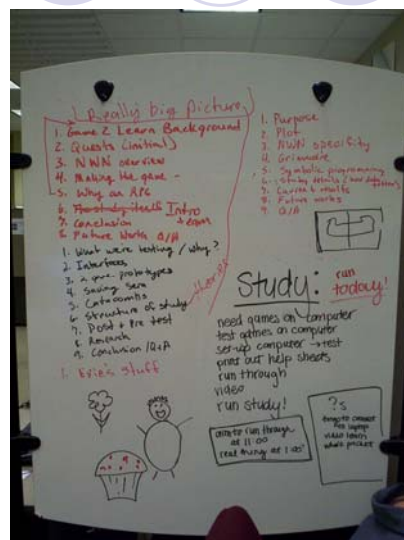 Really big picture
1. Game 2 Learn Background
2. Quests (initial)
3. NWN overview
4. Making the game -
5. Why an RPG
6. Intro
7. Conclusion
8. Future Works Q/A
1. What we're testing / Why?
2. Interfaces
3. 2 game prototypes
4. Saving Sera
5. Catacombs
6. Structure of study
7. Post + Pre test
8. Research
9. Conclusion / Q+A
1. stuff
1. Purpose
2. Plot
3. NWN specificity
4. Grimoire
5. Symbolic programming
6. Study details
7. Current results
8. Future works
9. Q/A
Study: run today!
need games on computer
test games on computer
set-up computer → test
print out help sheets
run through
video
run study!
run through
at 11:00
real thing at 1:00!
?s
video
whole packet